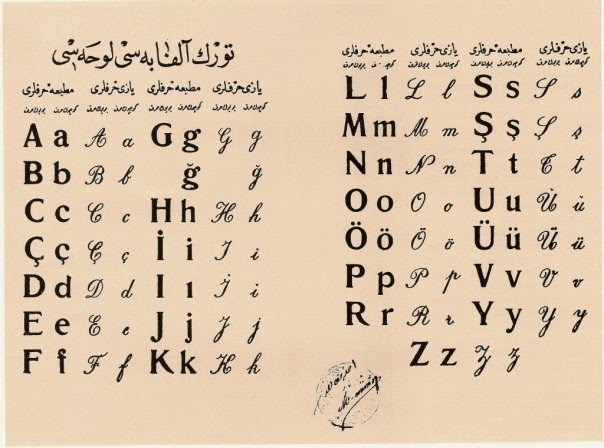 تورك آلفابه سی لوحه سی
یازی حرفلری مطبعه حرفلری یازی حرفلری مطبعه حرفلری
A a A a G g G g
B b B b ğ ğ
C c C c H h H h
Ç ç Ç ç İ i I i
D d D d I ı İ i
E e E e J j J j
F f F f K k K k
یازی حرفلری مطبعه حرفلری یازی حرفلری مطبعه حرفلری
L l L l S s S s
M m M m Ş ş Ş ş
N n N n T t T t
O o O o U u Ù ù
Ö ö Ö ö Ü ü Ü ü
P p P p V v V v
R r R r Y y Y y
Z z Z z